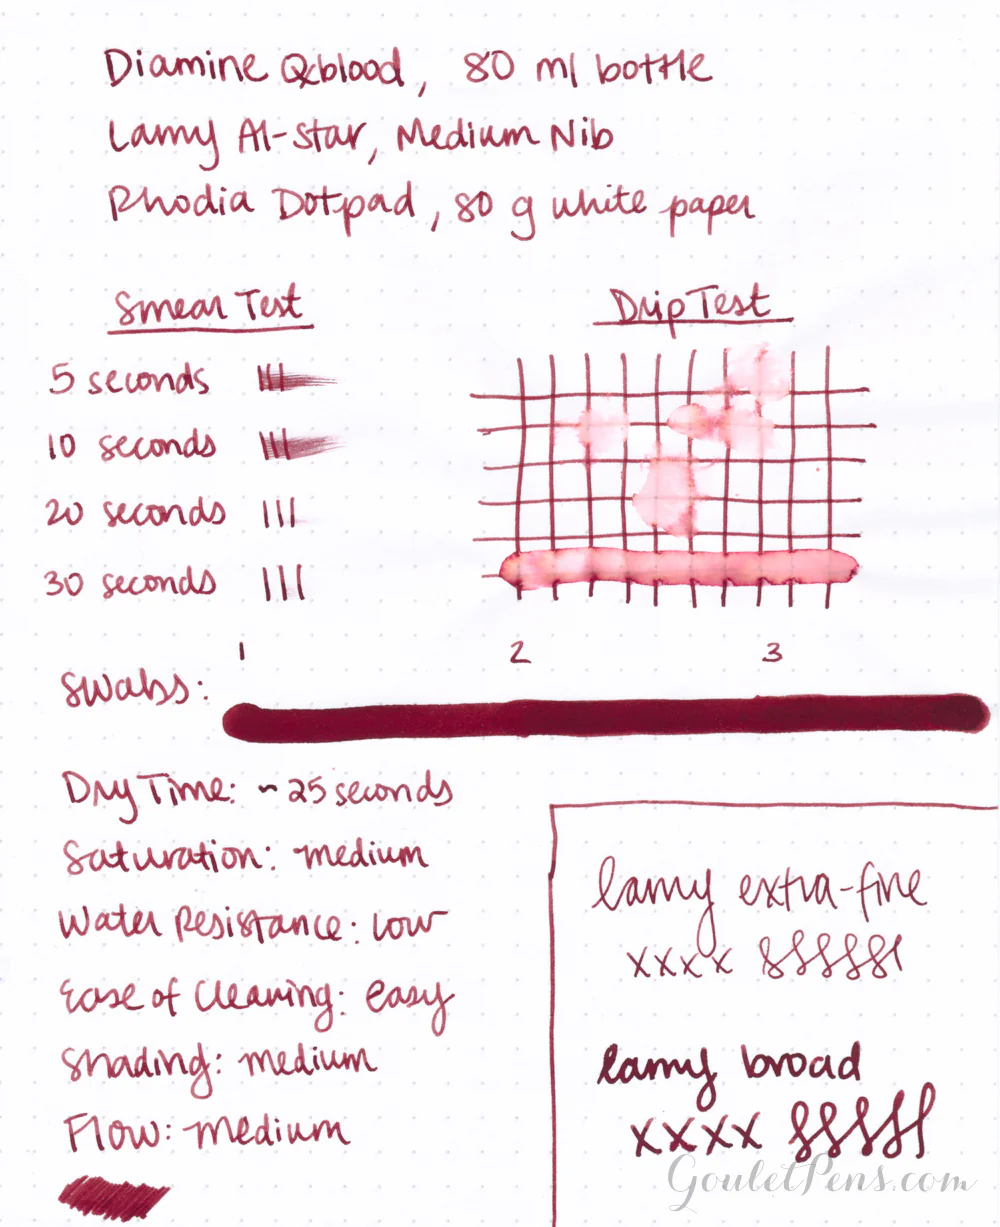 Diamine Oxblood, 80 ml bottle
Lamy Al-Star, Medium Nib
Rhodia Dotpad, 80 g white paper
Smear Test
5 seconds
10 seconds
20 seconds
30 seconds
Drip Test
1 2 3
Swabs:
Dry Time: ~25 seconds
Saturation: medium
Water Resistance: low
Ease of Cleaning: easy
Shading: medium
Flow: medium
lamy extra-fine
xxxx
lamy broad
xxxx
GouletPens.com